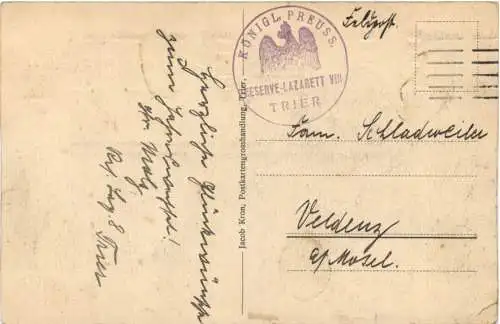 Feldpost.
KÖNIGL. PREUSS.
RESERVE-LAZARETT VIII
TRIER
Fam. Schladweiler
Veldenz
a/Mosel.
Jacob Kron, Postkartengrosshandlung, Trier.
Herzliche Glückwünsche
zum Jahreswechsel!
Res. Laz. 8 Trier